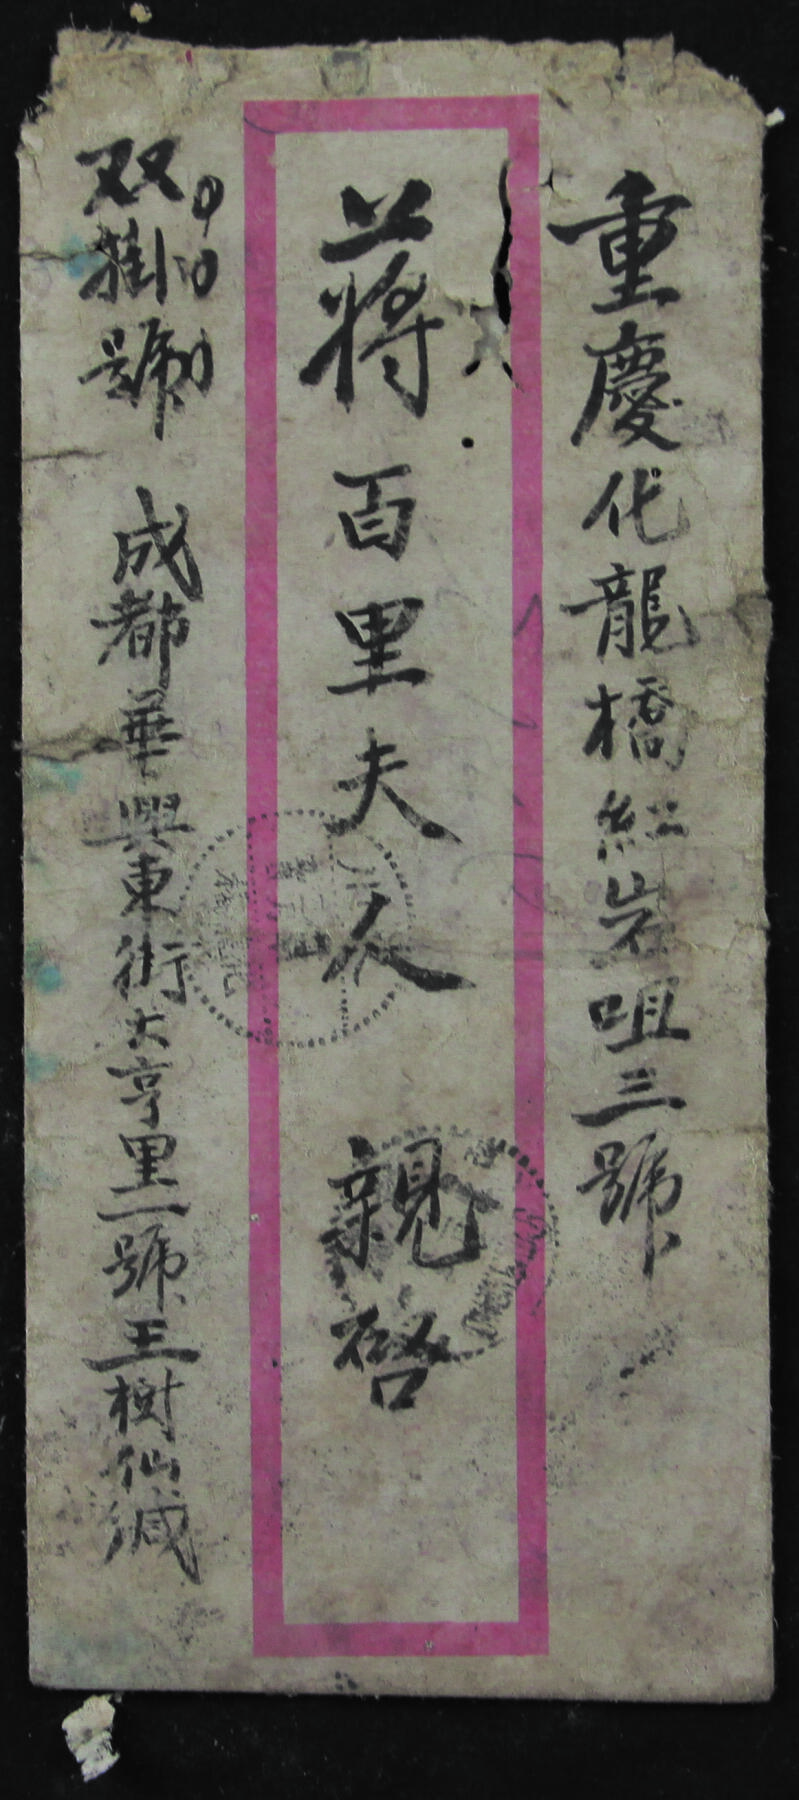 重慶化龍橋紅岩咀三號
蔣百里夫人 親啓
双掛號
成都華興東街大亨里二號王樹仙緘